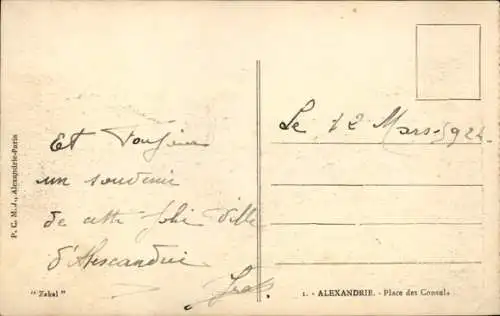 Le 12 Mars 1922
Et Toujours
un souvenir
de cette jolie ville
d'Alexandrie
P. C. M. J., Alexandrie-Paris
"Zekal"
1. - ALEXANDRIE. - Place des Consuls